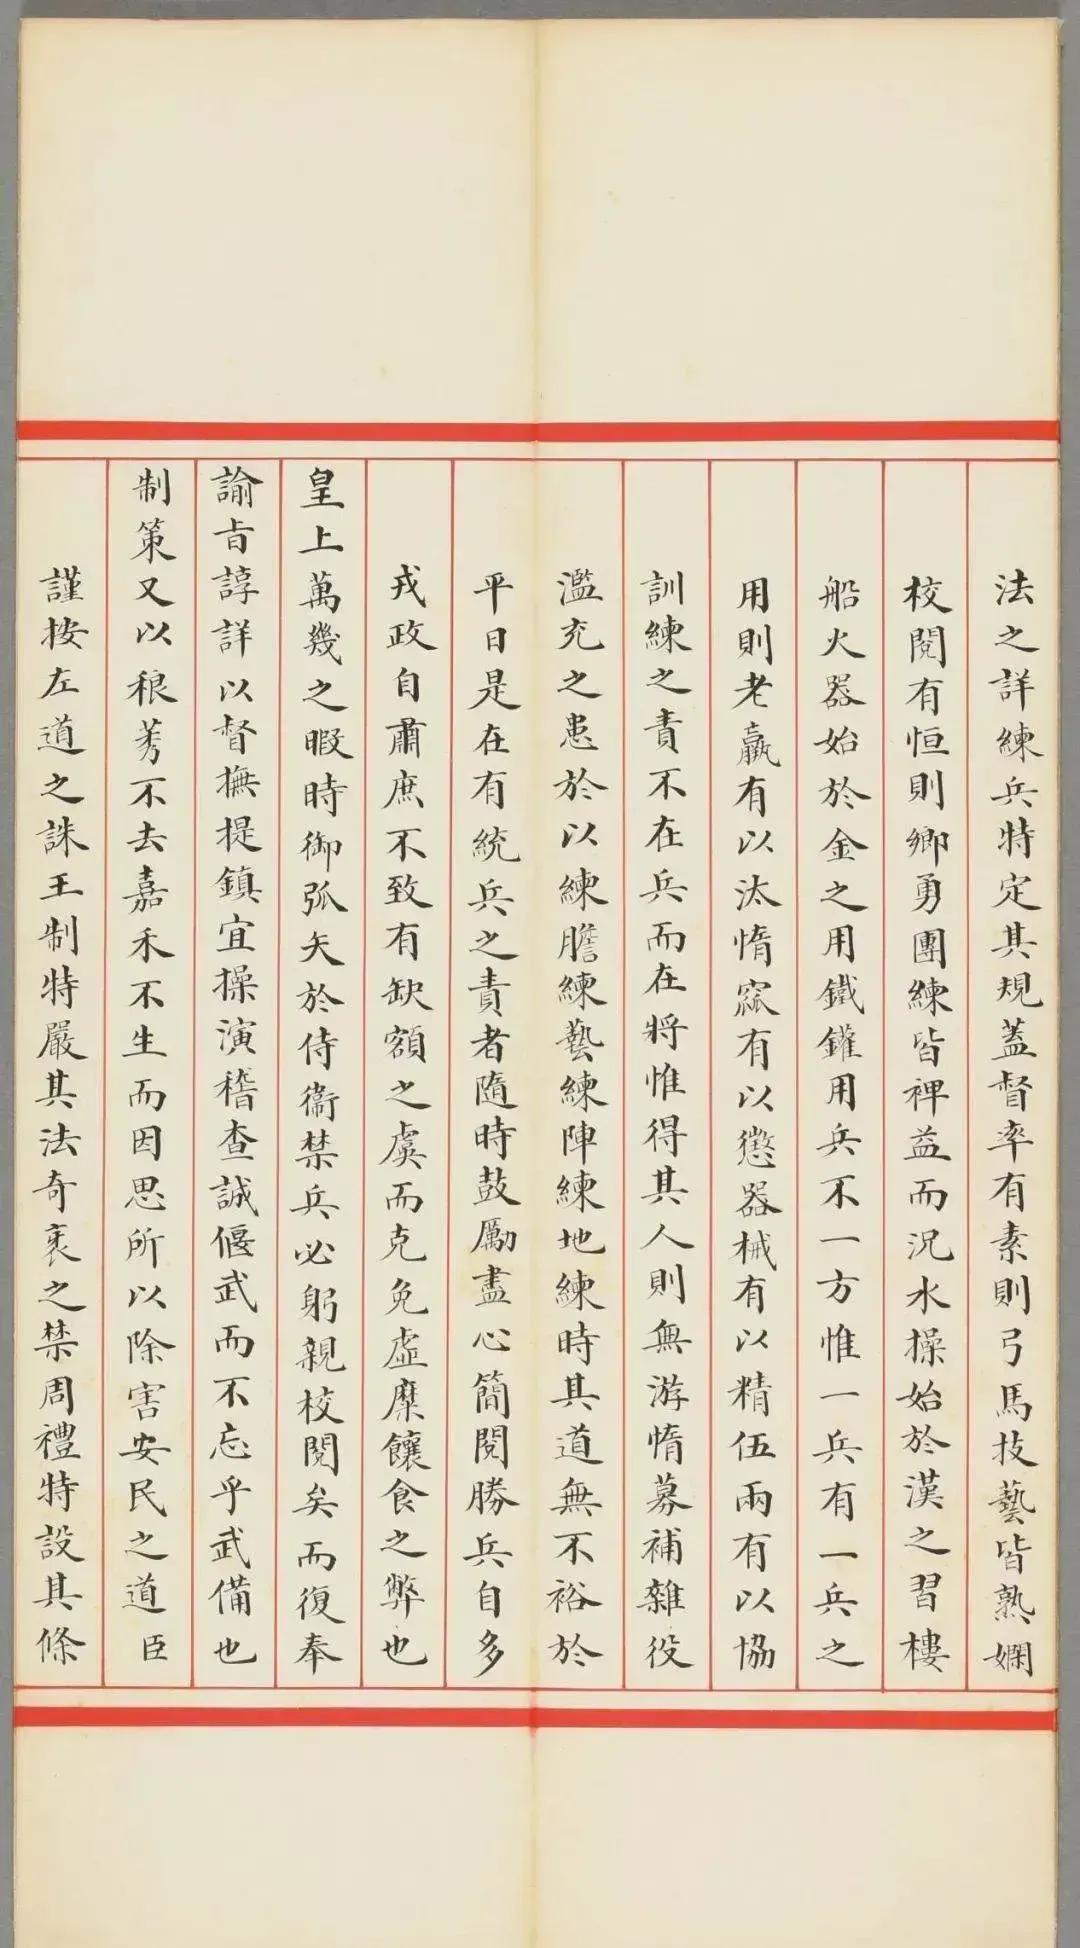 法之詳練兵特定其規蓋督率有素則弓馬技藝皆熟嫻
校閱有恒則鄉勇團練皆裨益而況水操始於漢之習樓
船火器始於金之用鐵鑵用兵不一方惟一兵有一兵之
用則老羸有以汰惰窳有以懲器械有以精伍兩有以協
訓練之責不在兵而在將惟得其人則無游惰募補雜役
濫充之患於以練膽練藝練陣練地練時其道無不裕於
平日是在有統兵之責者隨時鼓勵盡心簡閱勝兵自多
戎政自肅庶不致有缺額之虞而克免虛糜饟食之弊也
皇上萬幾之暇時御弧矢於侍衞禁兵必躬親校閱矣而復奉
諭旨諄詳以督撫提鎮宜操演稽查誠偃武而不忘乎武備也
制策又以稂莠不去嘉禾不生而因思所以除害安民之道臣
謹按左道之誅王制特嚴其法奇袤之禁周禮特設其條